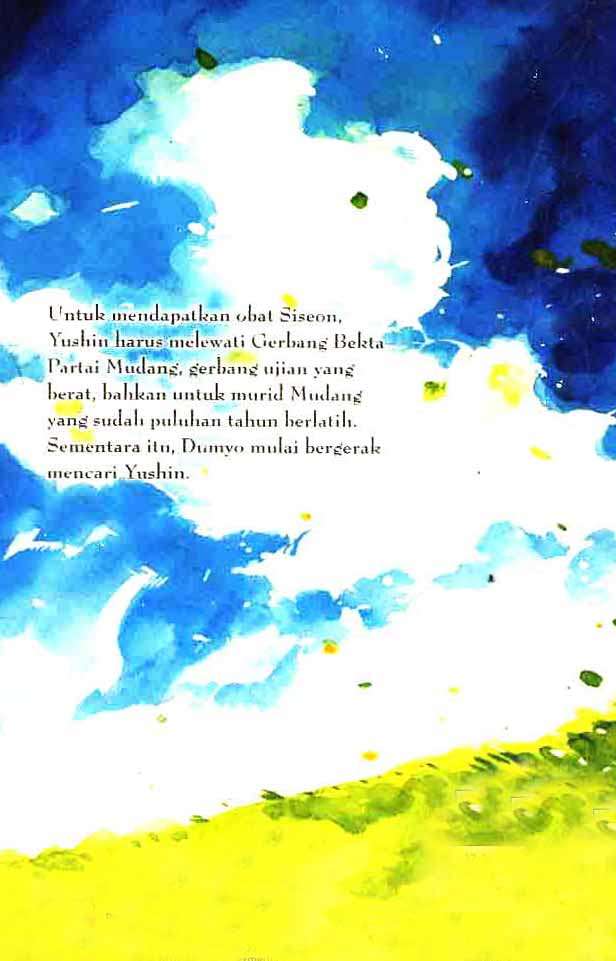 Untuk mendapatkan obat Siseon,
Yushin harus melewati Gerbang Bekta
Partai Mudang, gerbang ujian yang
berat, bahkan untuk murid Mudang
yang sudah puluhan tahun berlatih.
Sementara itu, Dumyo mulai bergerak
mencari Yushin.